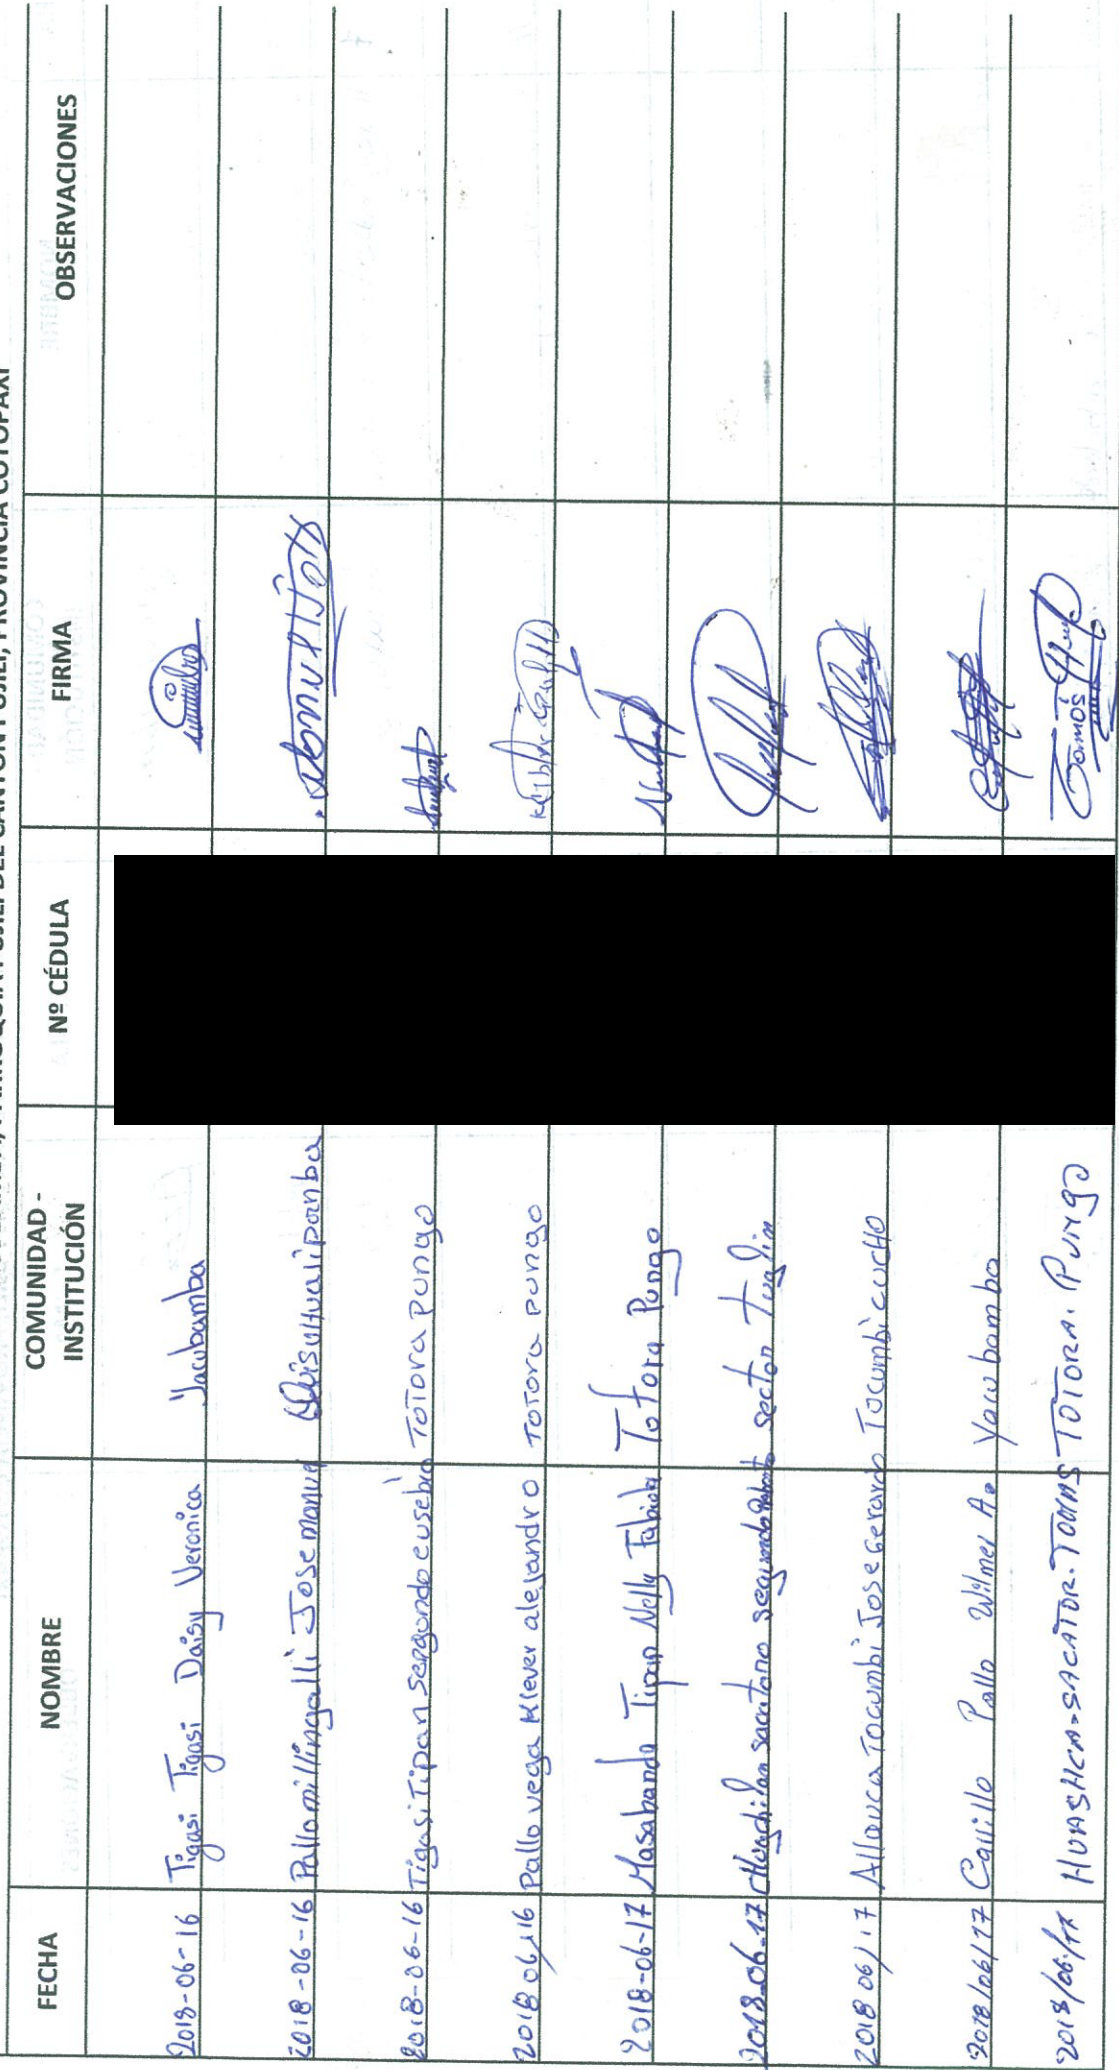 PARROQUIA PUJILI DEL CANTON PUJILI, PROVINCIA COTOPAXI
FECHA NOMBRE COMUNIDAD - INSTITUCIÓN Nº CÉDULA FIRMA OBSERVACIONES
2018-06-16 Tigasi Tigasi Daisy Veronica Yacubamba
2018-06-16 Pallo millingalli Jose manuel
2018-06-16 Tigasi Tipan segundo eusebio Totora pungo
2018 06 16 Pallo vega Klever alejandro Totora pungo
2018-06-17 Masabanda Tipan Nelly Fabiola Totora Pungo
2018-06-17 segundo sector
2018 06/17 Allauca Tocumbi Jose Gerardo Tocumbi cucho
2018/06/17 Casillo Pallo Wilmer A. Yacubamba
2018/06/17 TOMAS TOTORA. PUNGO